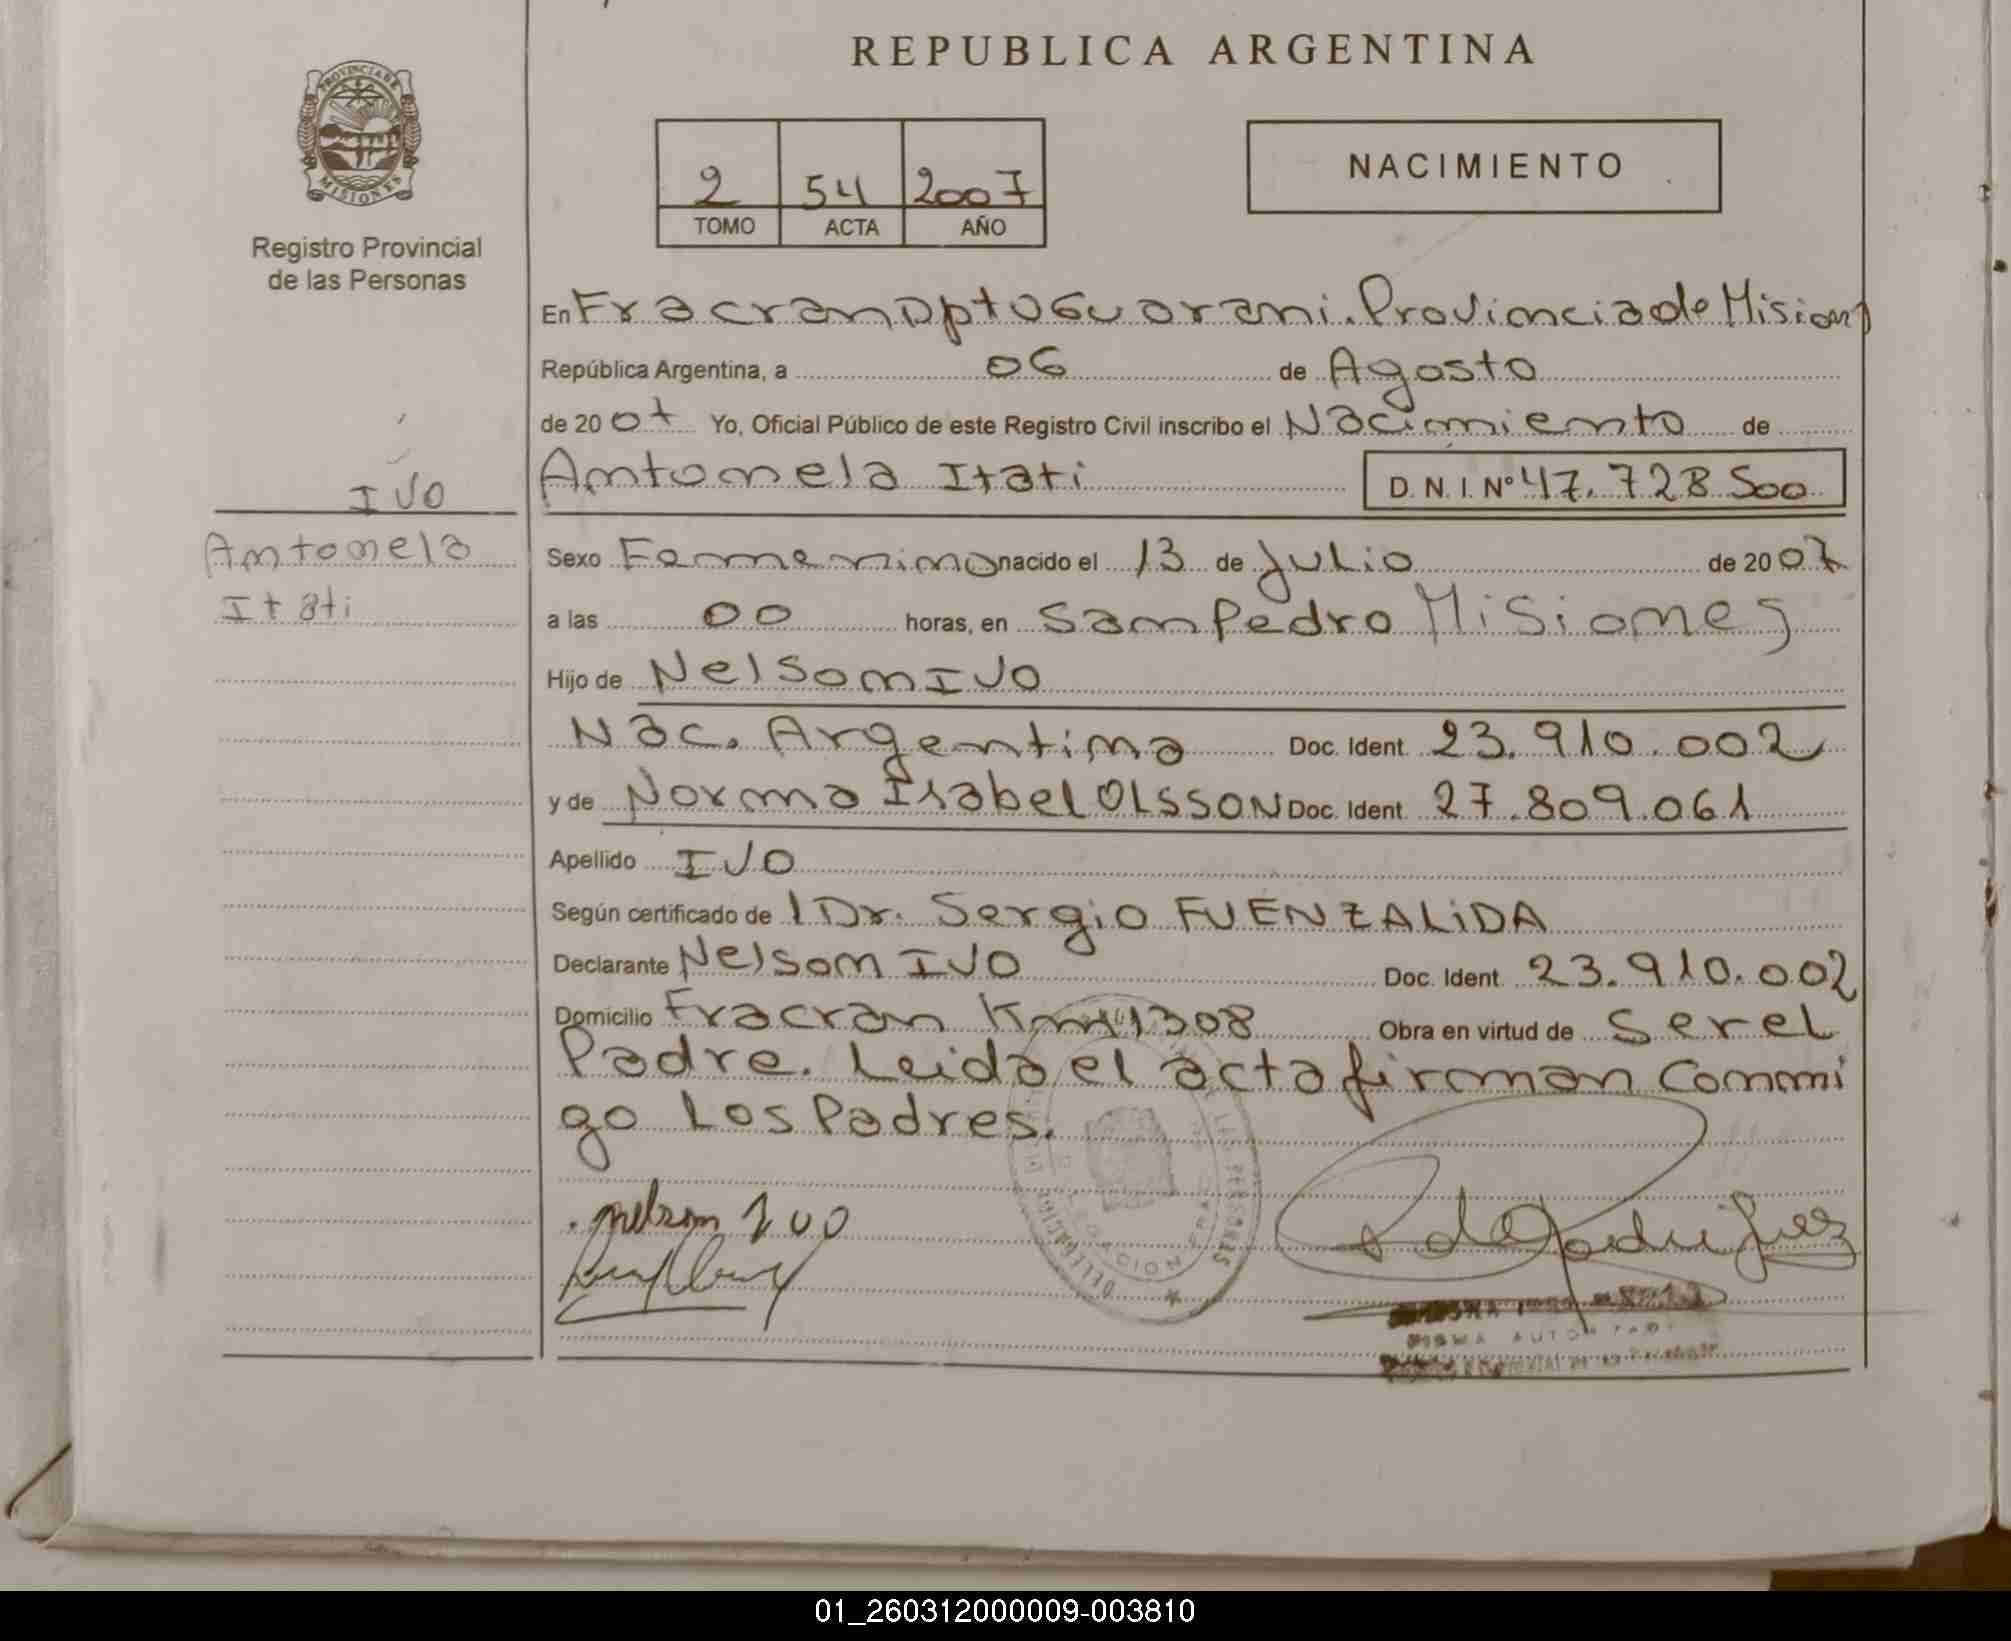 REPUBLICA ARGENTINA
PROVINCIA DE
MISIONES
Registro Provincial
de las Personas
2 54 2007
TOMO ACTA AÑO
NACIMIENTO
En Fracran Dpto Guarani. Provincia de Misiones
República Argentina, a 06 de Agosto
de 2007 Yo, Oficial Público de este Registro Civil inscribo el Nacimiento de
Antonela Itati D. N. I. Nº 47.728.500
IVO
Antonela
Itati
Sexo Femenino nacido el 13 de Julio de 2007
a las 00 horas, en San Pedro Misiones
Hijo de Nelson IVO
Nac. Argentina Doc. Ident. 23.910.002
y de Norma Isabel OLSSON Doc. Ident. 27.809.061
Apellido IVO
Según certificado de 1 Dr. Sergio FUENZALIDA
Declarante Nelson IVO Doc. Ident. 23.910.002
Domicilio Fracran Km 1308 Obra en virtud de Ser el
Padre. Leida el acta firman Conmi
go Los Padres.
nelson IVO
01_260312000009-003810